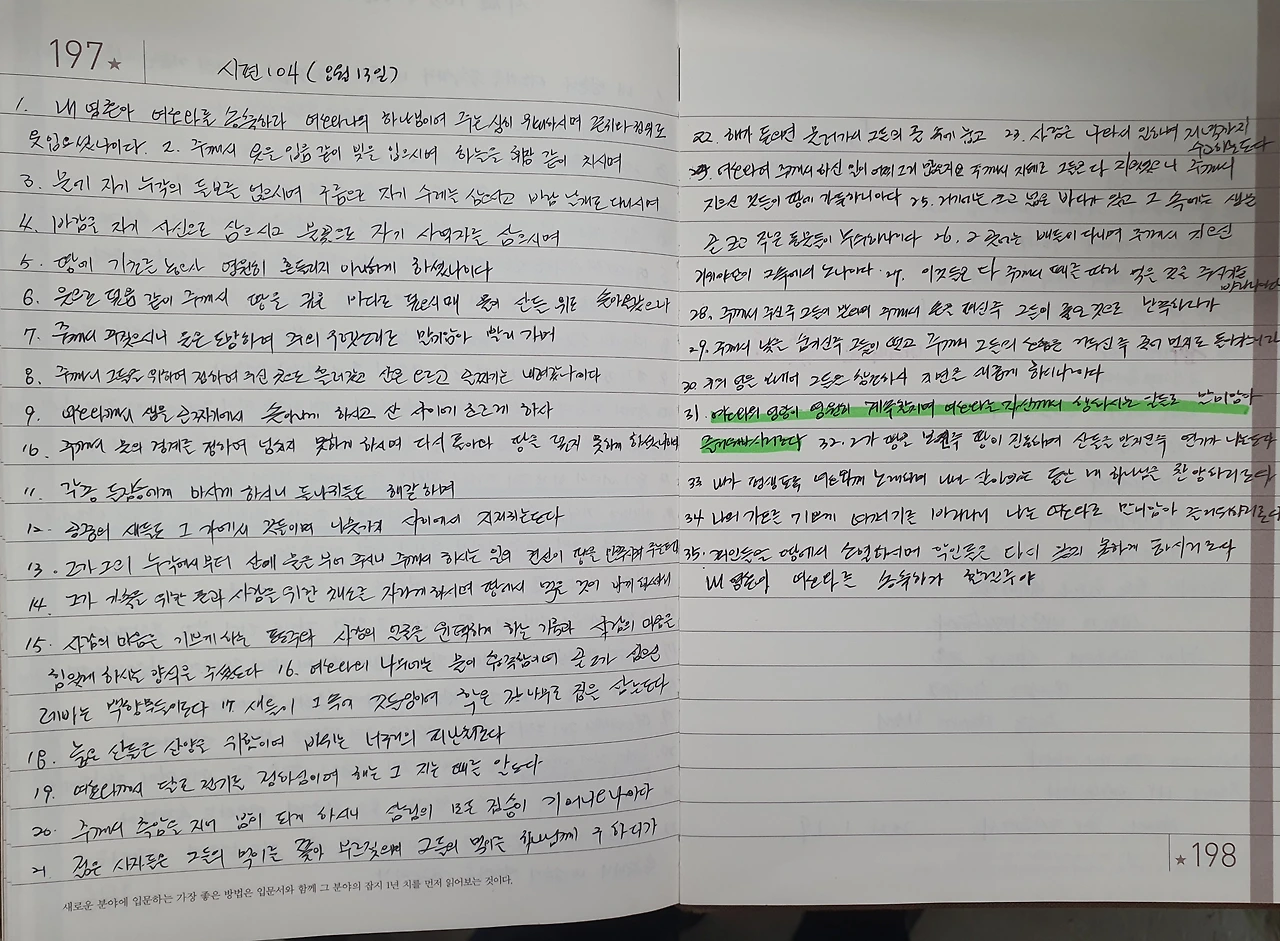 197
시편 104 ( 8월 13일 )
1. 내 영혼아 여호와를 송축하라 여호와 나의 하나님이여 주는 심히 위대하시며 존귀와 권위로
옷 입으셨나이다. 2. 주께서 옷을 입음 같이 빛을 입으시며 하늘을 휘장 같이 치시며
3. 물에 자기 누각의 들보를 얹으시며 구름으로 자기 수레를 삼으시고 바람 날개로 다니시며
4. 바람을 자기 사신으로 삼으시고 불꽃으로 자기 사역자를 삼으시며
5. 땅에 기초를 놓으사 영원히 흔들리지 아니하게 하셨나이다
6. 옷으로 덮음 같이 주께서 땅을 깊은 바다로 덮으시매 물이 산들 위로 솟아올랐으나
7. 주께서 꾸짖으시니 물은 도망하며 주의 우렛소리로 말미암아 빨리 가며
8. 주께서 그들을 위하여 정하여 주신 곳으로 흘러갔고 산은 오르고 골짜기는 내려갔나이다
9. 여호와께서 샘을 골짜기에서 솟아나게 하시고 산 사이에 흐르게 하사
10. 주께서 물의 경계를 정하여 넘치지 못하게 하시며 다시 돌아와 땅을 덮지 못하게 하셨나이다
11. 각종 들짐승에게 마시게 하시니 들나귀들도 해갈하며
12. 공중의 새들도 그 가에서 깃들이며 나뭇가지 사이에서 지저귀는도다
13. 그가 그의 누각에서부터 산에 물을 부어 주시니 주께서 하시는 일의 결실이 땅을 만족시켜 주는도다
14. 그가 가축을 위한 풀과 사람을 위한 채소를 자라게 하시며 땅에서 먹을 것이 나게 하셔서
15. 사람의 마음을 기쁘게 하는 포도주와 사람의 얼굴을 윤택하게 하는 기름과 사람의 마음을
힘있게 하시는 양식을 주셨도다 16. 여호와의 나무에는 물이 흡족함이여 곧 그가 심으신
레바논 백향목들이로다 17. 새들이 그 속에 깃들임이여 학은 잣나무로 집을 삼는도다
18. 높은 산들은 산양을 위함이여 바위는 너구리의 피난처로다
19. 여호와께서 달로 절기를 정하심이여 해는 그 지는 때를 알도다
20. 주께서 흑암을 지어 밤이 되게 하시니 삼림의 모든 짐승이 기어나오나이다
21 젊은 사자들은 그들의 먹이를 쫓아 부르짖으며 그들의 먹이를 하나님께 구하다가
새로운 분야에 입문하는 가장 좋은 방법은 입문서와 함께 그 분야의 잡지 1년 치를 먼저 읽어보는 것이다.
22. 해가 돋으면 물러가서 그들의 굴 속에 눕고 23. 사람은 나와서 일하며 저녁까지
수고하는도다
24. 여호와여 주께서 하신 일이 어찌 그리 많은지요 주께서 지혜로 그들을 다 지으셨으니 주께서
지으신 것들이 땅에 가득하니이다 25. 거기에는 크고 넓은 바다가 있고 그 속에는 생물
곧 크고 작은 동물들이 무수하니이다 26. 그 곳에는 배들이 다니며 주께서 지으신
리워야단이 그 속에서 노나이다. 27. 이것들은 다 주께서 때를 따라 먹을 것을 주시기를
바라나이다
28. 주께서 주신즉 그들이 받으며 주께서 손을 펴신즉 그들이 좋은 것으로 만족하다가
29. 주께서 낯을 숨기신즉 그들이 떨고 주께서 그들의 호흡을 거두신즉 죽어 먼지로 돌아가나이다
30 주의 영을 보내어 그들을 창조하사 지면을 새롭게 하시나이다
31. 여호와의 영광이 영원히 계속할지며 여호와는 자신께서 행하시는 일들로 말미암아
즐거워하시리로다 32. 그가 땅을 보신즉 땅이 진동하며 산들을 만지신즉 연기가 나는도다
33 내가 평생토록 여호와께 노래하며 내가 살아있는 동안 내 하나님을 찬양하리로다
34 나의 기도를 기쁘게 여기시기를 바라나니 나는 여호와로 말미암아 즐거워하리로다
35. 죄인들을 땅에서 소멸하시며 악인들을 다시 있지 못하게 하시리로다
내 영혼아 여호와를 송축하라 할렐루야
198